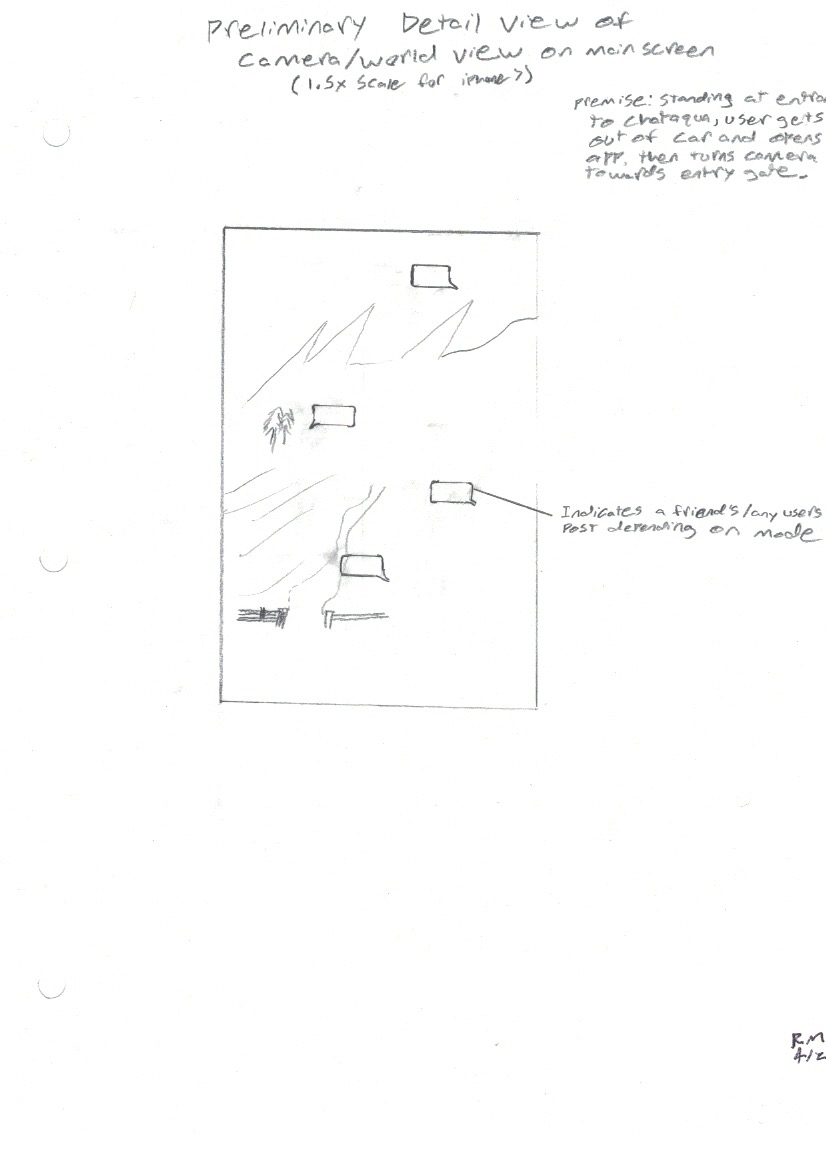 Preliminary Detail View of
Camera/world view on main screen
(1.5x scale for iphone 7)
premise: standing at entra
to Chataqua, user gets
out of car and opens
app, then turns camera
towards entry gate.
Indicates a friend's/any users
Post depending on mode
RM
4/2